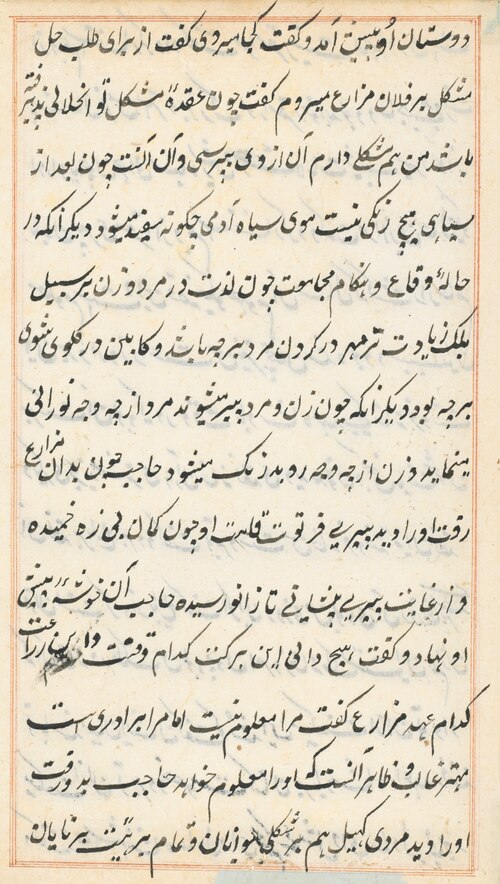 دوستان او پیش آمد و گفت کجا میروی گفت از برای طلب حل
مشکل بر فلان مزارع میروم گفت چون عقدهٔ مشکل تو انحلال پذیرفته
باشد من هم مشکلی دارم آن از وی بپرسی و آن آنست چون بعد از
سیاهی هیچ رنگی نیست موی سیاه آدمی چگونه سفید میشود دیگر آنکه در
حالهٔ وقاع و هنگام مجامعت چون لذت در مرد و زن بر سبیل
زیادت تر مهر در گردن مرد بر چه باشد و کابین در گلوی شوی
بر چه بود دیگر آنکه چون زن و مرد پیر میشوند مرد از چه وجه نورانی
مینماید و زن از چه وجه رو بد رنگ میشود حاجب چون بدان مزارع
رفت او را دید پیری فرتوت قامت او چون کمان بی زه خمیده
و از غایت پیری پیشانی تا زانو رسیده حاجب آن خوشه پیش
او نهاد و گفت هیچ دانی این برکت کدام وقت و این زراعت
کدام عهد مزارع گفت مرا معلوم نیست اما مرا برادری است
مهتر غالب و ظاهر آنست که او را معلوم خواهد حاجب بدو رفت
او را دید مردی کهیل هم بر شکل و تمام بر هیئت برنایان